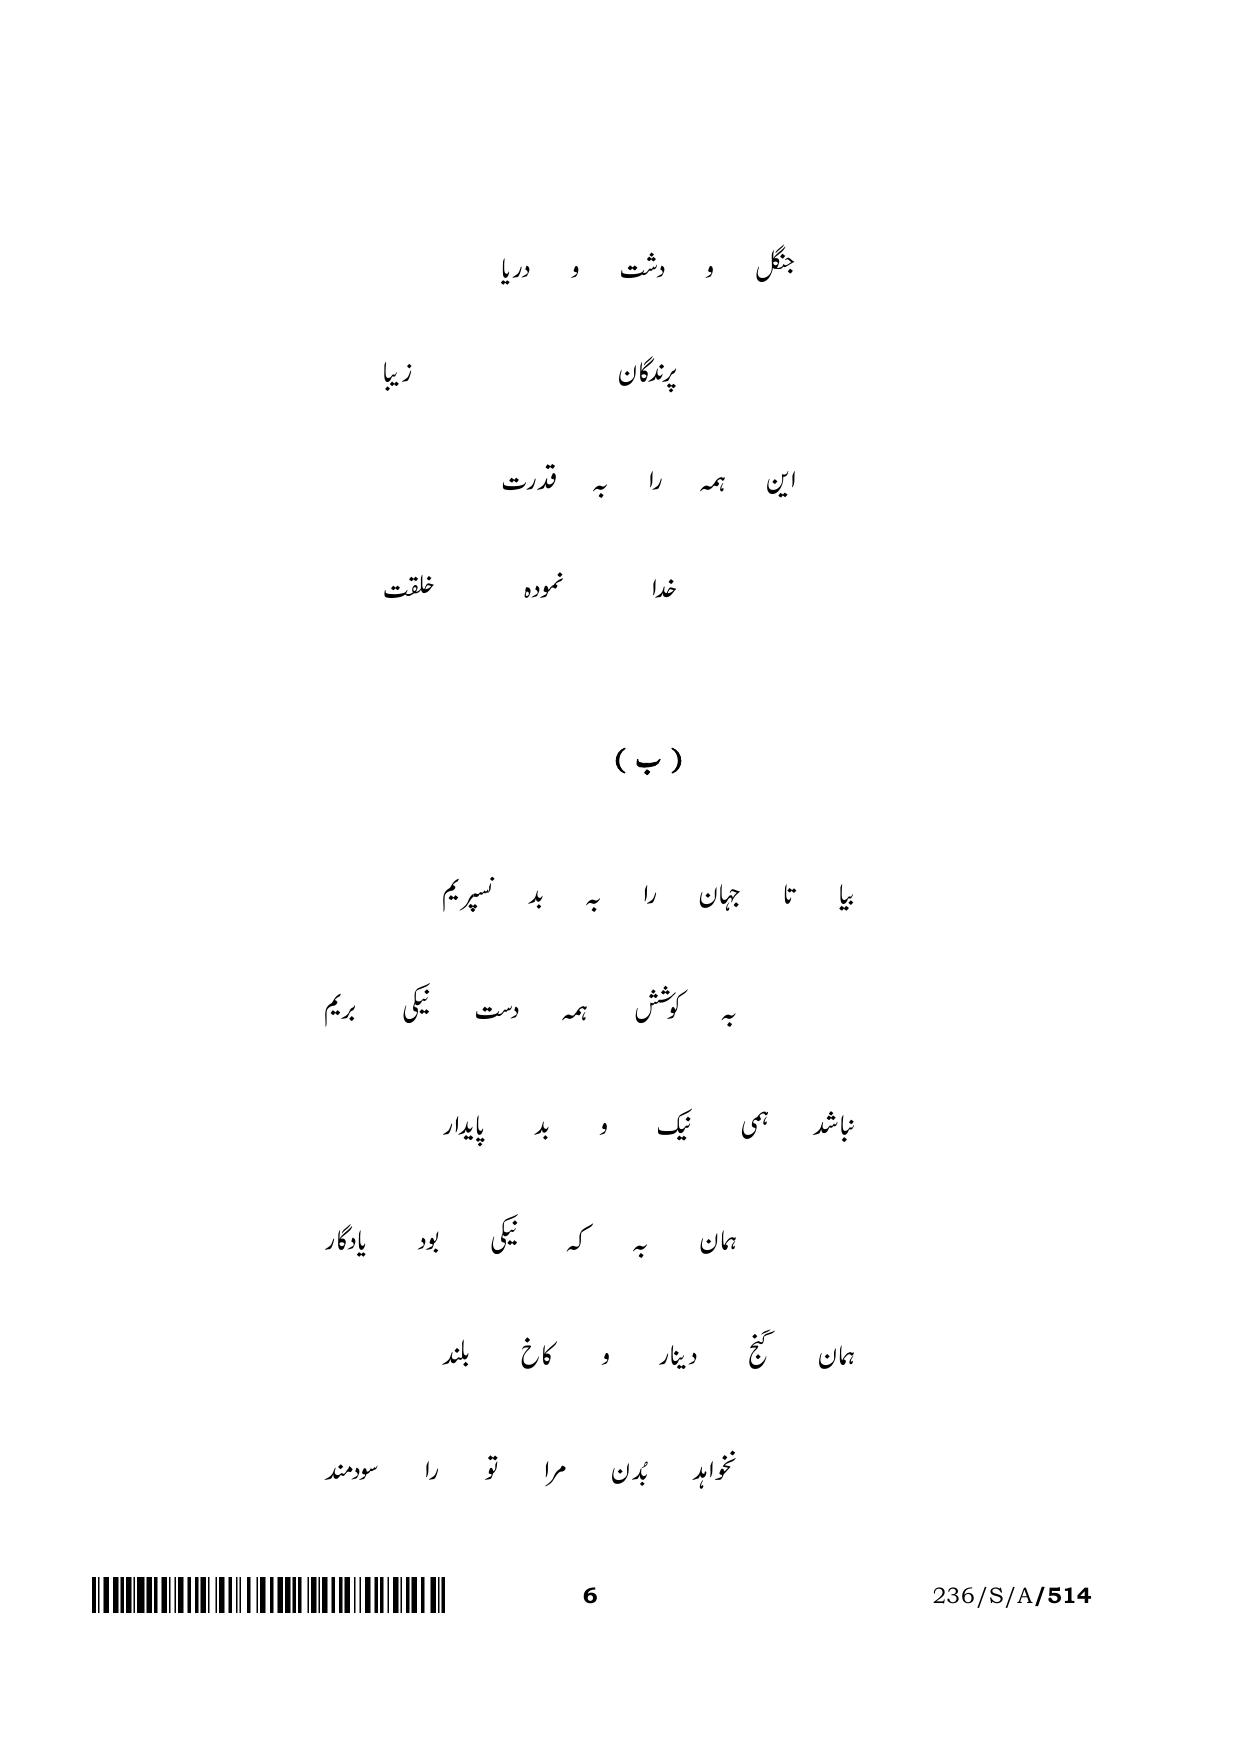 جنگل و دشت و دریا
پرندگان زیبا
این ہمہ را بہ قدرت
خدا نمودہ خلقت
( ب )
بیا تا جہان را بہ بد نسپریم
بہ کوشش ہمہ دست نیکی بریم
نباشد ہمی نیک و بد پایدار
ہمان بہ کہ نیکی بود یادگار
ہمان گنج دینار و کاخ بلند
نخواہد بُدن مرا تو را سودمند
6
236/S/A/514